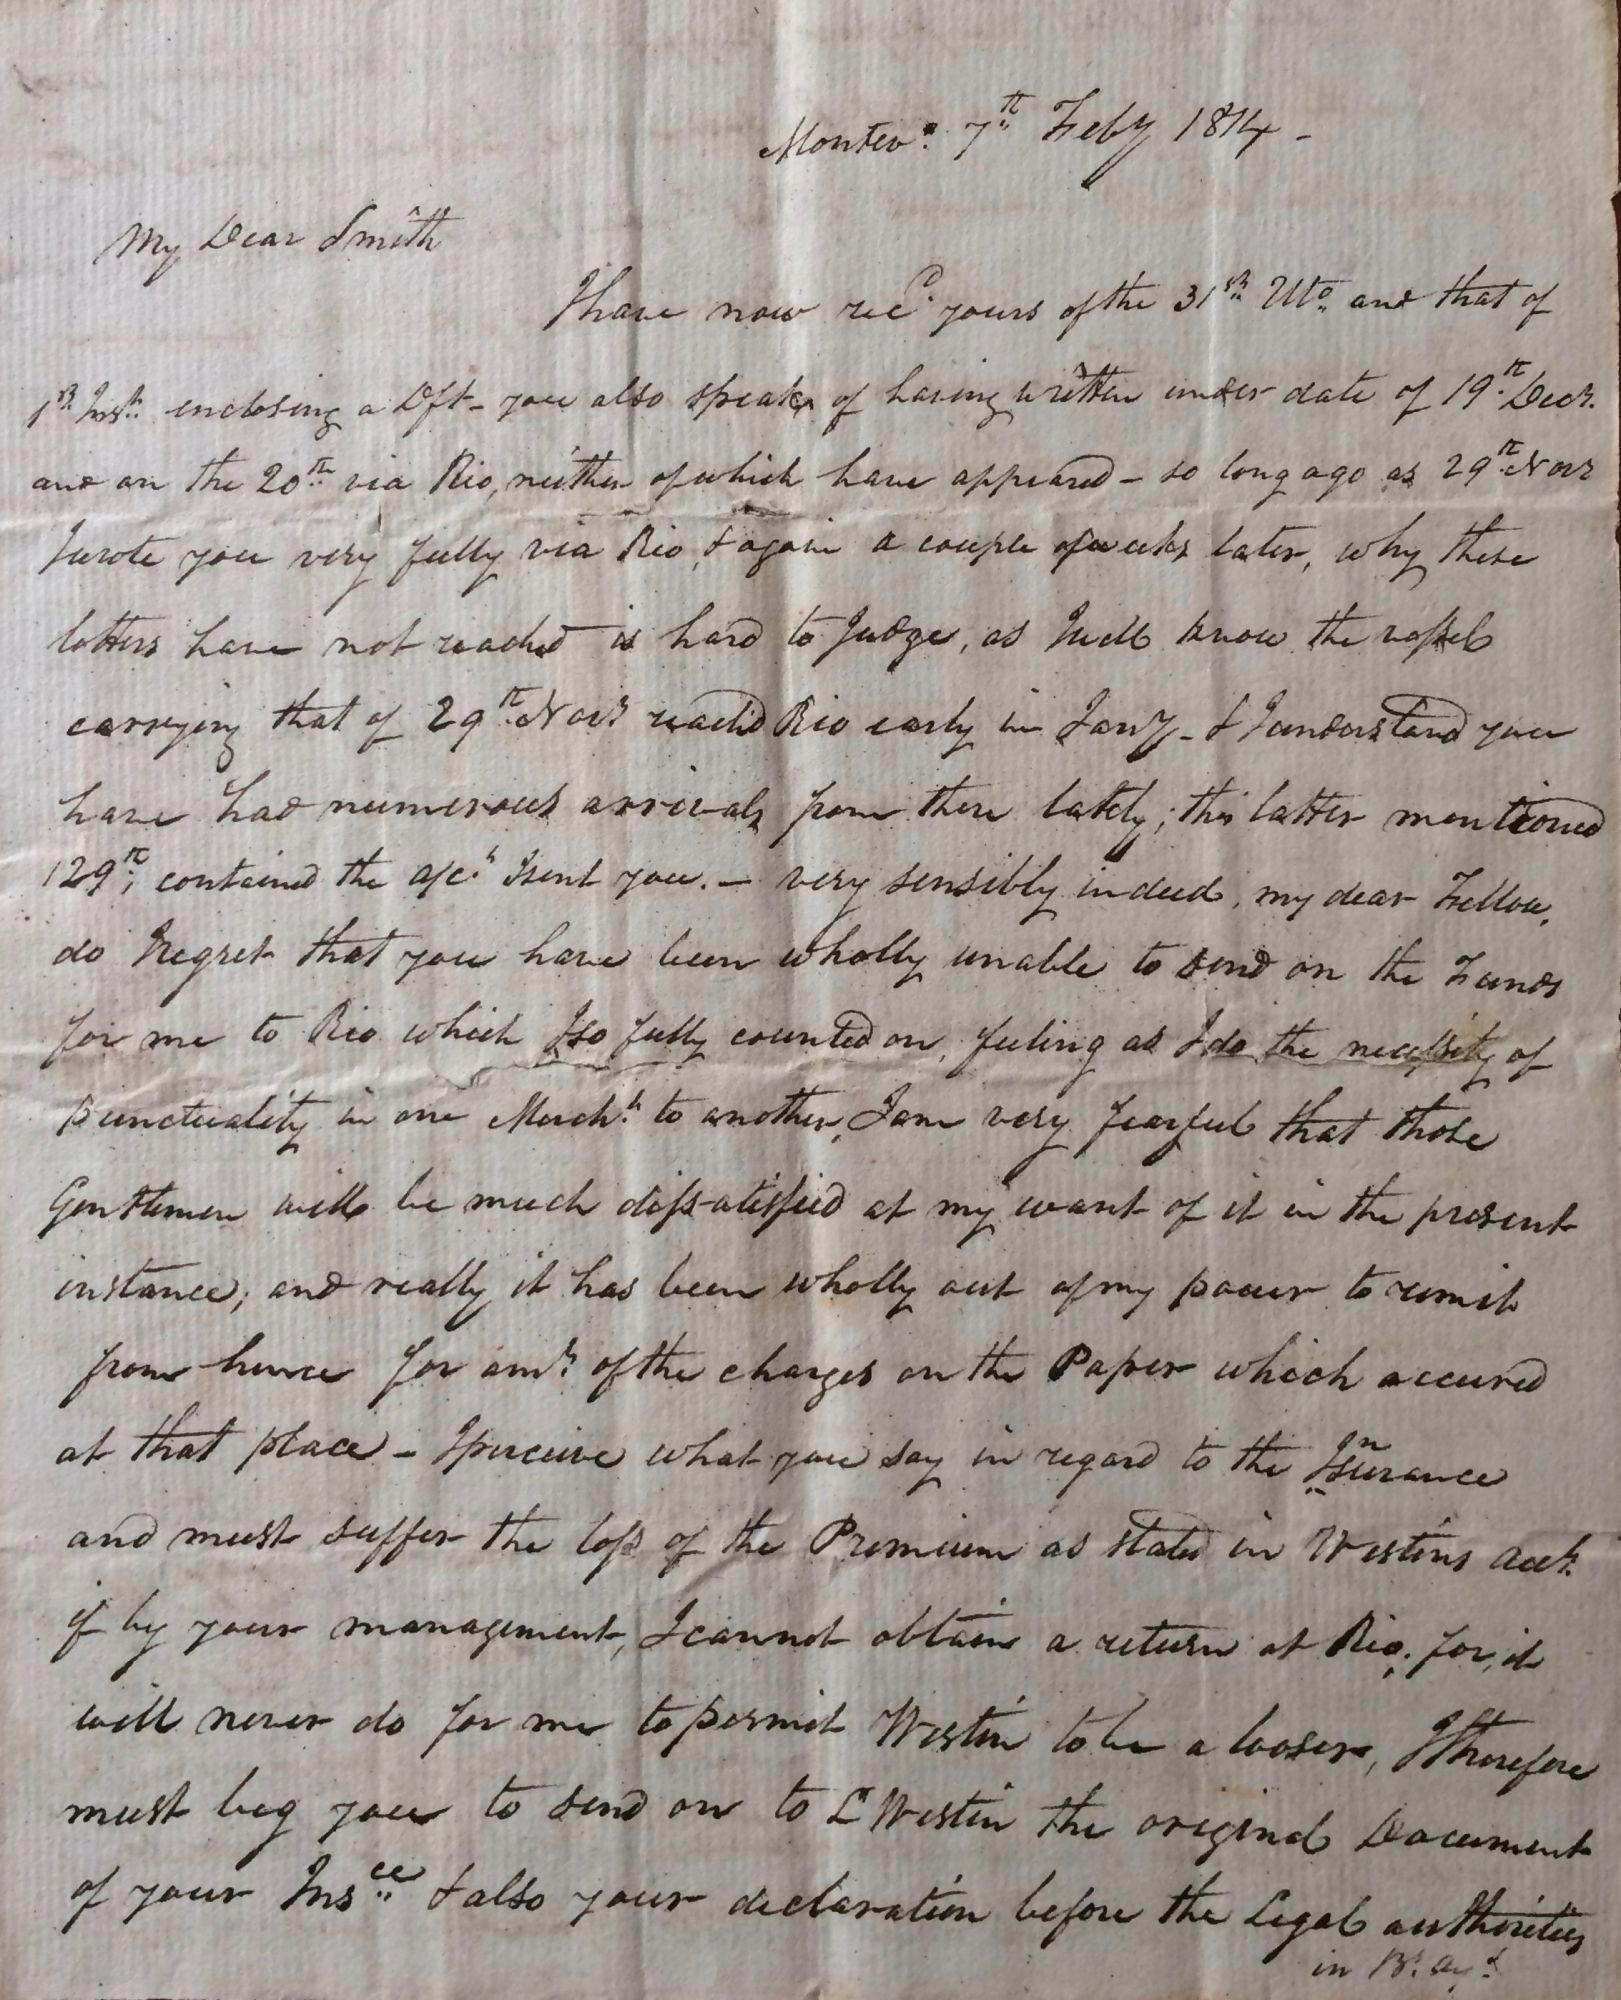 Montevo. 7th Feby 1814 -
My Dear Smith
I have now recd. yours of the 31st Ulto. and that of
1st Inst. enclosing a Dft - you also speak of having written under date of 19th Decr.
and on the 20th via Rio, neither of which have appeared - so long ago as 29th Novr
I wrote you very fully via Rio, & again a couple of weeks later, why these
letters have not reached is hard to Judge, as I well know the vessel
carrying that of 29th Novr reached Rio early in Jany - & I understand you
have had numerous arrivals from there lately; this latter mentioned
/29th, contained the a/ct I sent you. - very sensibly indeed, my dear Fellow,
do I regret that you have been wholly unable to send on the Funds
for me to Rio which I so fully counted on, feeling as I do the necessity of
punctuality in one Mercht. to another, I am very fearful that those
Gentlemen will be much dissatisfied at my want of it in the present
instance; and really it has been wholly out of my power to remit
from hence for amt. of the charges on the Paper which accured
at that place - I perceive what you say in regard to the Insurance
and must suffer the loss of the Premium as stated in Westins acct.
if by your management, I cannot obtain a return at Rio, for, it
will never do for me to permit Westin to be a looser, I therefore
must beg you to send on to L Westin the original Document
of your Insce & also your declaration before the Legal authorities
in Bs. Ays.